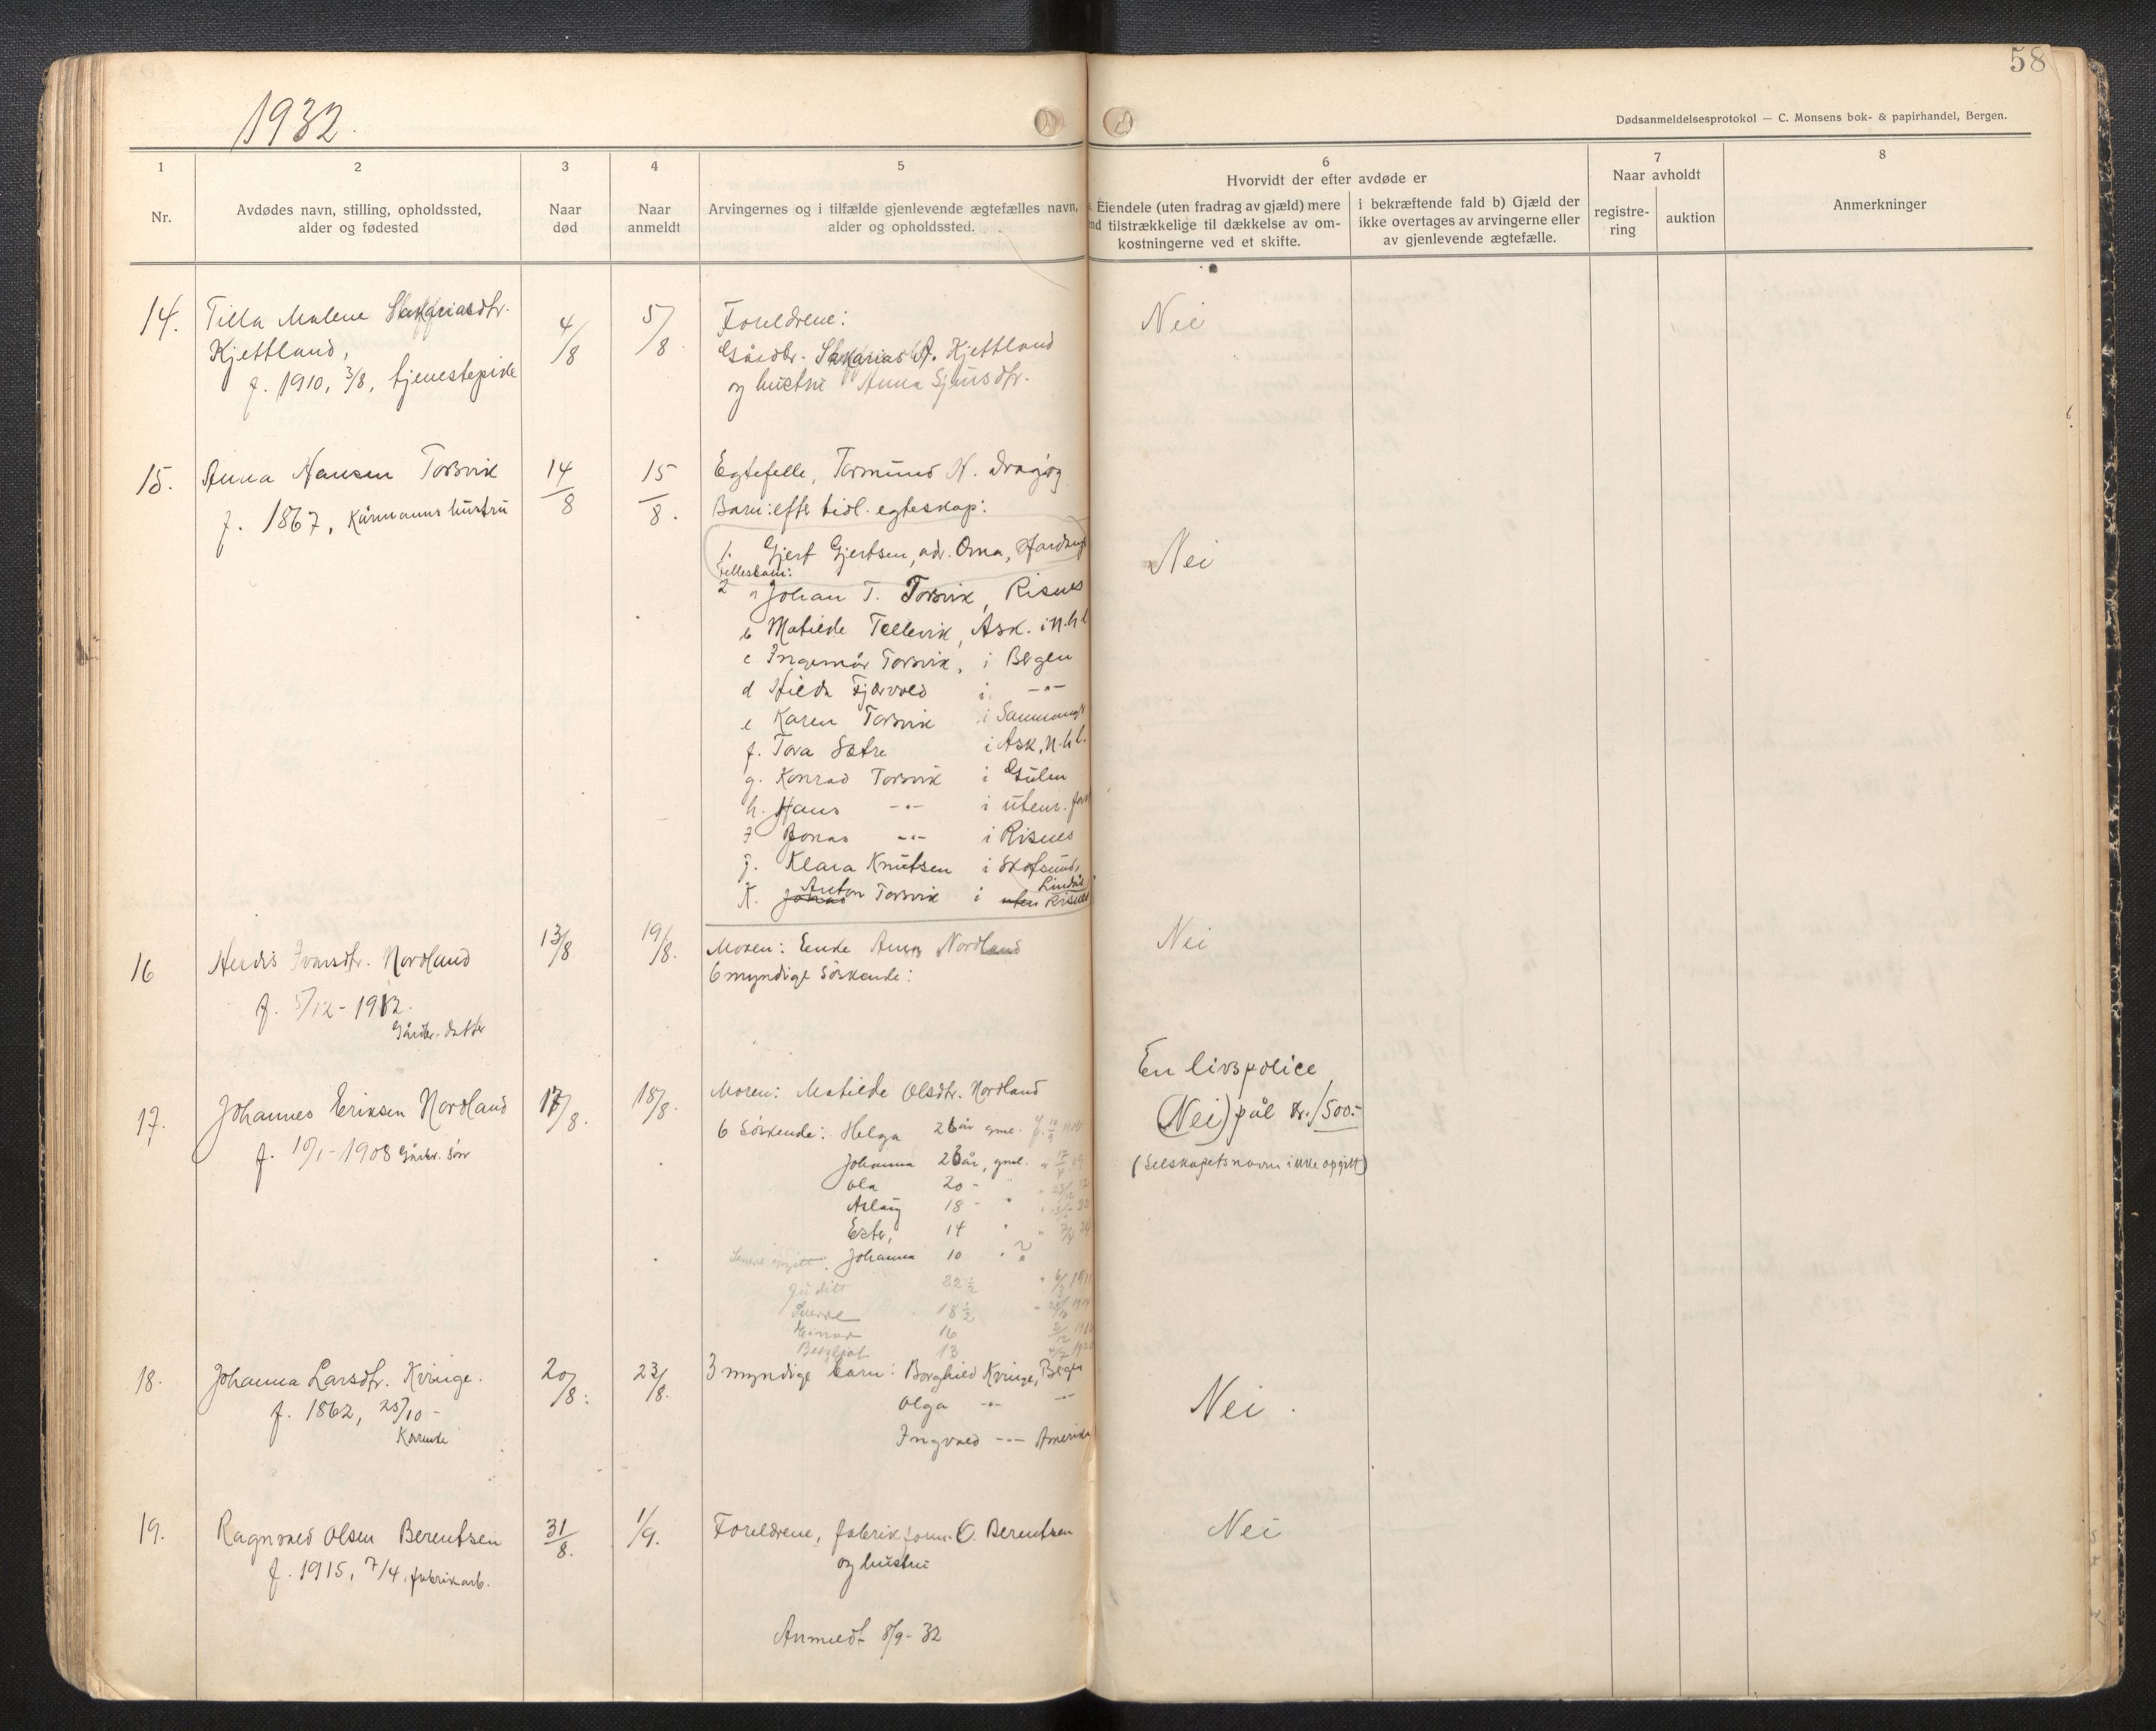 58
1932.
Dødsanmeldelsesprotokol — C. Monsens bok- & papirhandel, Bergen.
1
2
3
4
5
6
7
8
Nr.
Avdødes navn, stilling, opholdssted,
alder og fødested
Naar
død
Naar
anmeldt
Arvingernes og i tilfælde gjenlevende ægtefælles navn,
alder og opholdssted.
Hvorvidt der efter avdøde er
Eiendele (uten fradrag av gjæld) mere
end tilstrækkelige til dækkelse av om-
kostningerne ved et skifte.
i bekræftende fald b) Gjæld der
ikke overtages av arvingerne eller
av gjenlevende ægtefælle.
Naar avholdt
registre-
ring
auktion
Anmerkninger
14.
Tilla Malene
Kjettland,
f. 1910, 3/8, tjenestepike
4/8
5/8
Foreldrene:
Gårdbr. A. Kjettland
og hustru Anna Sjursdtr.
Nei
15.
Anna Hansen Torsvik
f. 1867, Kårmanns hustru
14/8
15/8.
Egtefelle, Tormund H. og
Barn: efter tidl. egteskap:
1. Gjert Gjertsen, adr. Oma,
Fellesbarn:
2 a Johan T. Torsvik, Risnes
b Matilde Tellevik, Ask. i N.h.l
c Ingemår Torsvik, i Bergen
d Hilda Fjærvold i -"-
e Karen Torsvik i
f. Tora Sætre i Ask, N.h.l.
g. Konrad Torsvik i Gulen
h. Hans -"- i utenr. fart
i Jonas -"- i Risnes
j. Klara Knutsen i
Lindås
K. Anton Torsvik i Risnes
Nei
16
Herdis Ivarsdtr. Nordland
f. 5/12 - 1912.
Gårdbr. datter
13/8
19/8.
Moren: Enke Anna Nordland
6 myndige Søskende:
Nei
17.
Johannes Eriksen Nordland
f. 10/1 - 1908 Gårdbr. sønn
17/8.
18/8.
Moren: Matilde Olsdtr. Nordland
6 Søskende: Helga 26 år gml.
Johanna 23 år, gml.
Ola 20 -
Aslaug 18 - "
Ester, 14 "
Johanna 10 " ?
Guditt 22 ½
Sverre 18 ½
Einar 16
Bergljot 13
En livspolice
(Nei) pål kr. 1500.-
(Selskapets navn ikke opgitt)
18.
Johanna Larsdtr. Kvinge.
f. 1862, 25/10 -
Kårenke
20/8.
23/8.
3 myndige barn: Borghild Kvinge, Bergen
Olga -"- -"-
Ingvald -"- Amerika
Nei.
19.
Ragnvald Olsen Berentsen
f. 1915, 7/4, fabrikarb.
31/8.
1/9.
Foreldrene, fabrikform. O. Berentsen
og hustru
Nei
Anmeldt 8/9 - 32